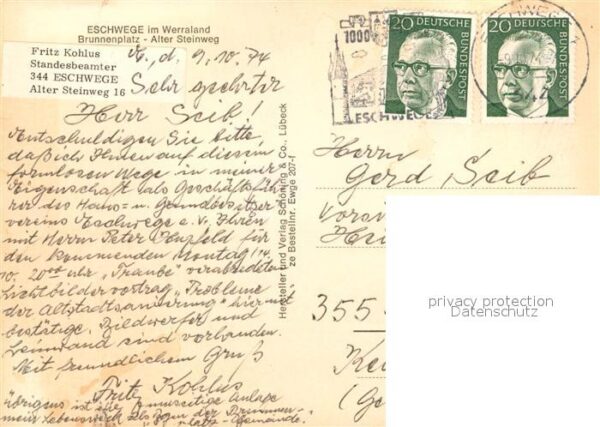 ESCHWEGE im Werraland
Brunnenplatz - Alter Steinweg
Fritz Kohlus
Standesbeamter
344 ESCHWEGE
Alter Steinweg 16
d. 9.10.74
Sehr geehrter
Herr Seib!
Entschuldigen Sie bitte,
daß ich Ihnen auf diesem
formlosen Wege in meiner
Eigenschaft als Geschäftsfüh-
rer des Haus- u. Grundbesitzer-
vereins Eschwege e.V. Ihren
mit Herrn Peter Hupfeld für
den kommenden Montag 14.
10. 20⁰⁰ Uhr "Traube" verabredeten
Lichtbildervortrag "Probleme
der Altstadtsanierung" hiermit
bestätige. Bildwerfer und
Leinwand sind vorhanden.
Mit freundlichem Gruß
Fritz Kohlus
Übrigens ist die umseitige Anlage
mein Lebenswerk als der Brunnen-
Hersteller und Verlag Schöning & Co., Lübeck
ze Bestellnr. Ewge 207-f
1000
ESCHWEGE
20
DEUTSCHE
BUNDESPOST
20
DEUTSCHE
BUNDESPOST
ESCHWEGE 1
Herrn
Gerd Seib
355
privacy protection
Datenschutz